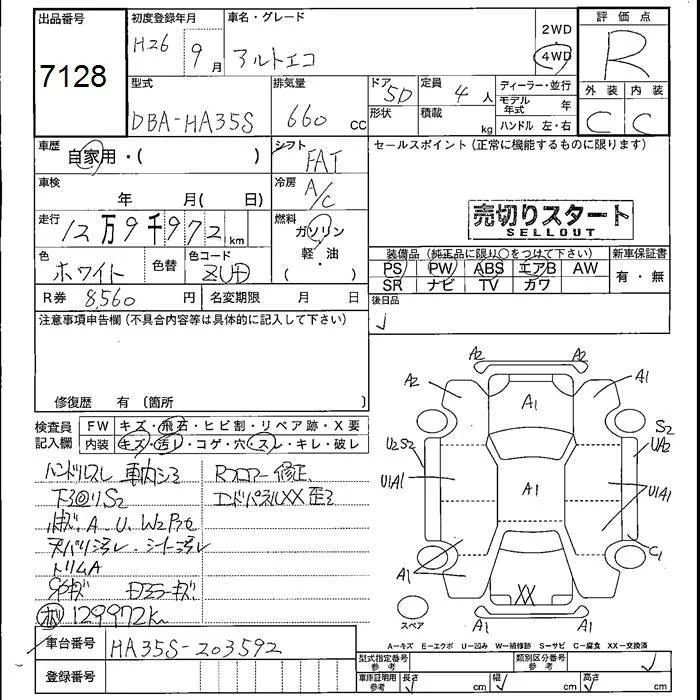 出品番号
7128
初度登録年月
H26 9月
車名・グレード
アルトエコ
2WD
4WD
評価点
R
外装 内装
C C
型式
DBA-HA35S
排気量
660 cc
ドア
5D
形状
定員
4人
積載
kg
ディーラー・並行
モデル年式 年
ハンドル 左・右
車歴
自家用・( )
シフト
FAT
セールスポイント(正常に機能するものに限ります)
車検
年 月( 日)
冷房
A/C
走行
12万9千972km
燃料
ガソリン
・
軽・油
( )
売切りスタート
SELLOUT
色
ホワイト
色替
色コード
ZUD
装備品(純正品に限り〇をつけて下さい)
PS PW ABS エアB AW
SR ナビ TV カワ
新車保証書
有・無
R券 8,560円
名変期限 月 日
後日品
注意事項申告欄(不具合内容等は具体的に記入して下さい)
修復歴 有(箇所 )
検査員
記入欄
FW キズ・飛石・ヒビ割・リペア跡・X要
内装 キズ・汚レ・コゲ・穴・スレ・キレ・破レ
ハンドルスレ 車内シミ
下廻りS2
Rフロアー修正
エンドパネルXX歪ミ
A.U.W2
天バリ汚レ.シート汚レ
トリムA
129972km
車台番号
HA35S-203592
登録番号
A2 A2
A2 A1
A1
S2
U2S2 UA2
U1A1 A1 U1A1
C1
A1
XX
A1 A1
スペア
A－キズ E－エクボ U－凹み W－補修跡 S－サビ C－腐食 XX－交換済
型式指定番号
参考
類別区分番号
参考
車庫証明用
参考
長さ cm 幅 cm 高さ cm